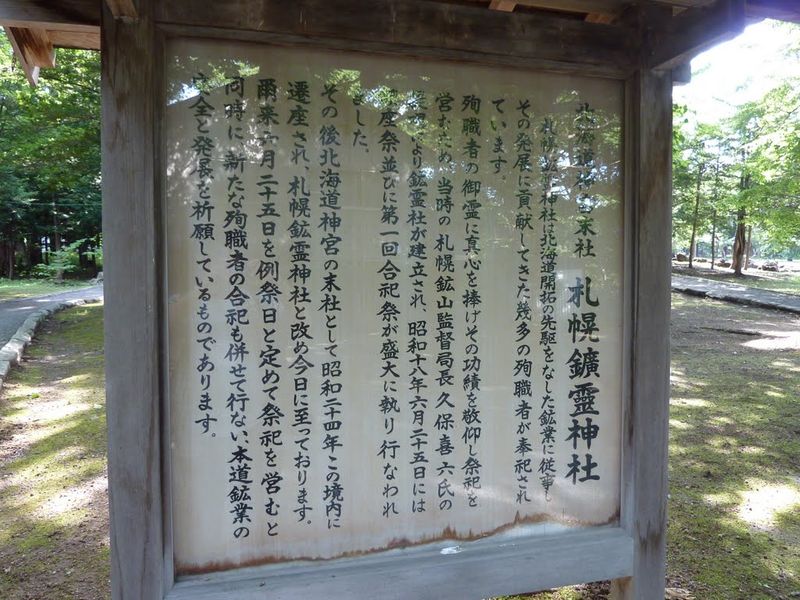 北海道神宮末社 札幌鑛靈神社
札幌鉱霊神社は北海道開拓の先駆をなした鉱業に従事し
その発展に貢献してきた幾多の殉職者が奉祀され
ています。
殉職者の御霊に真心を捧げその功績を敬仰し祭祀を
営むため、当時の札幌鉱山監督局長久保喜六氏の
により鉱霊社が建立され、昭和十八年六月二十五日には
座祭並びに第一回合祀祭が盛大に執り行なわれ
ました。
その後北海道神宮の末社として昭和二十四年この境内に
遷座され、札幌鉱霊神社と改め今日に至っております。
爾来六月二十五日を例祭日と定めて祭祀を営むと
同時に新たな殉職者の合祀も併せて行ない、本道鉱業の
安全と発展を祈願しているものであります。